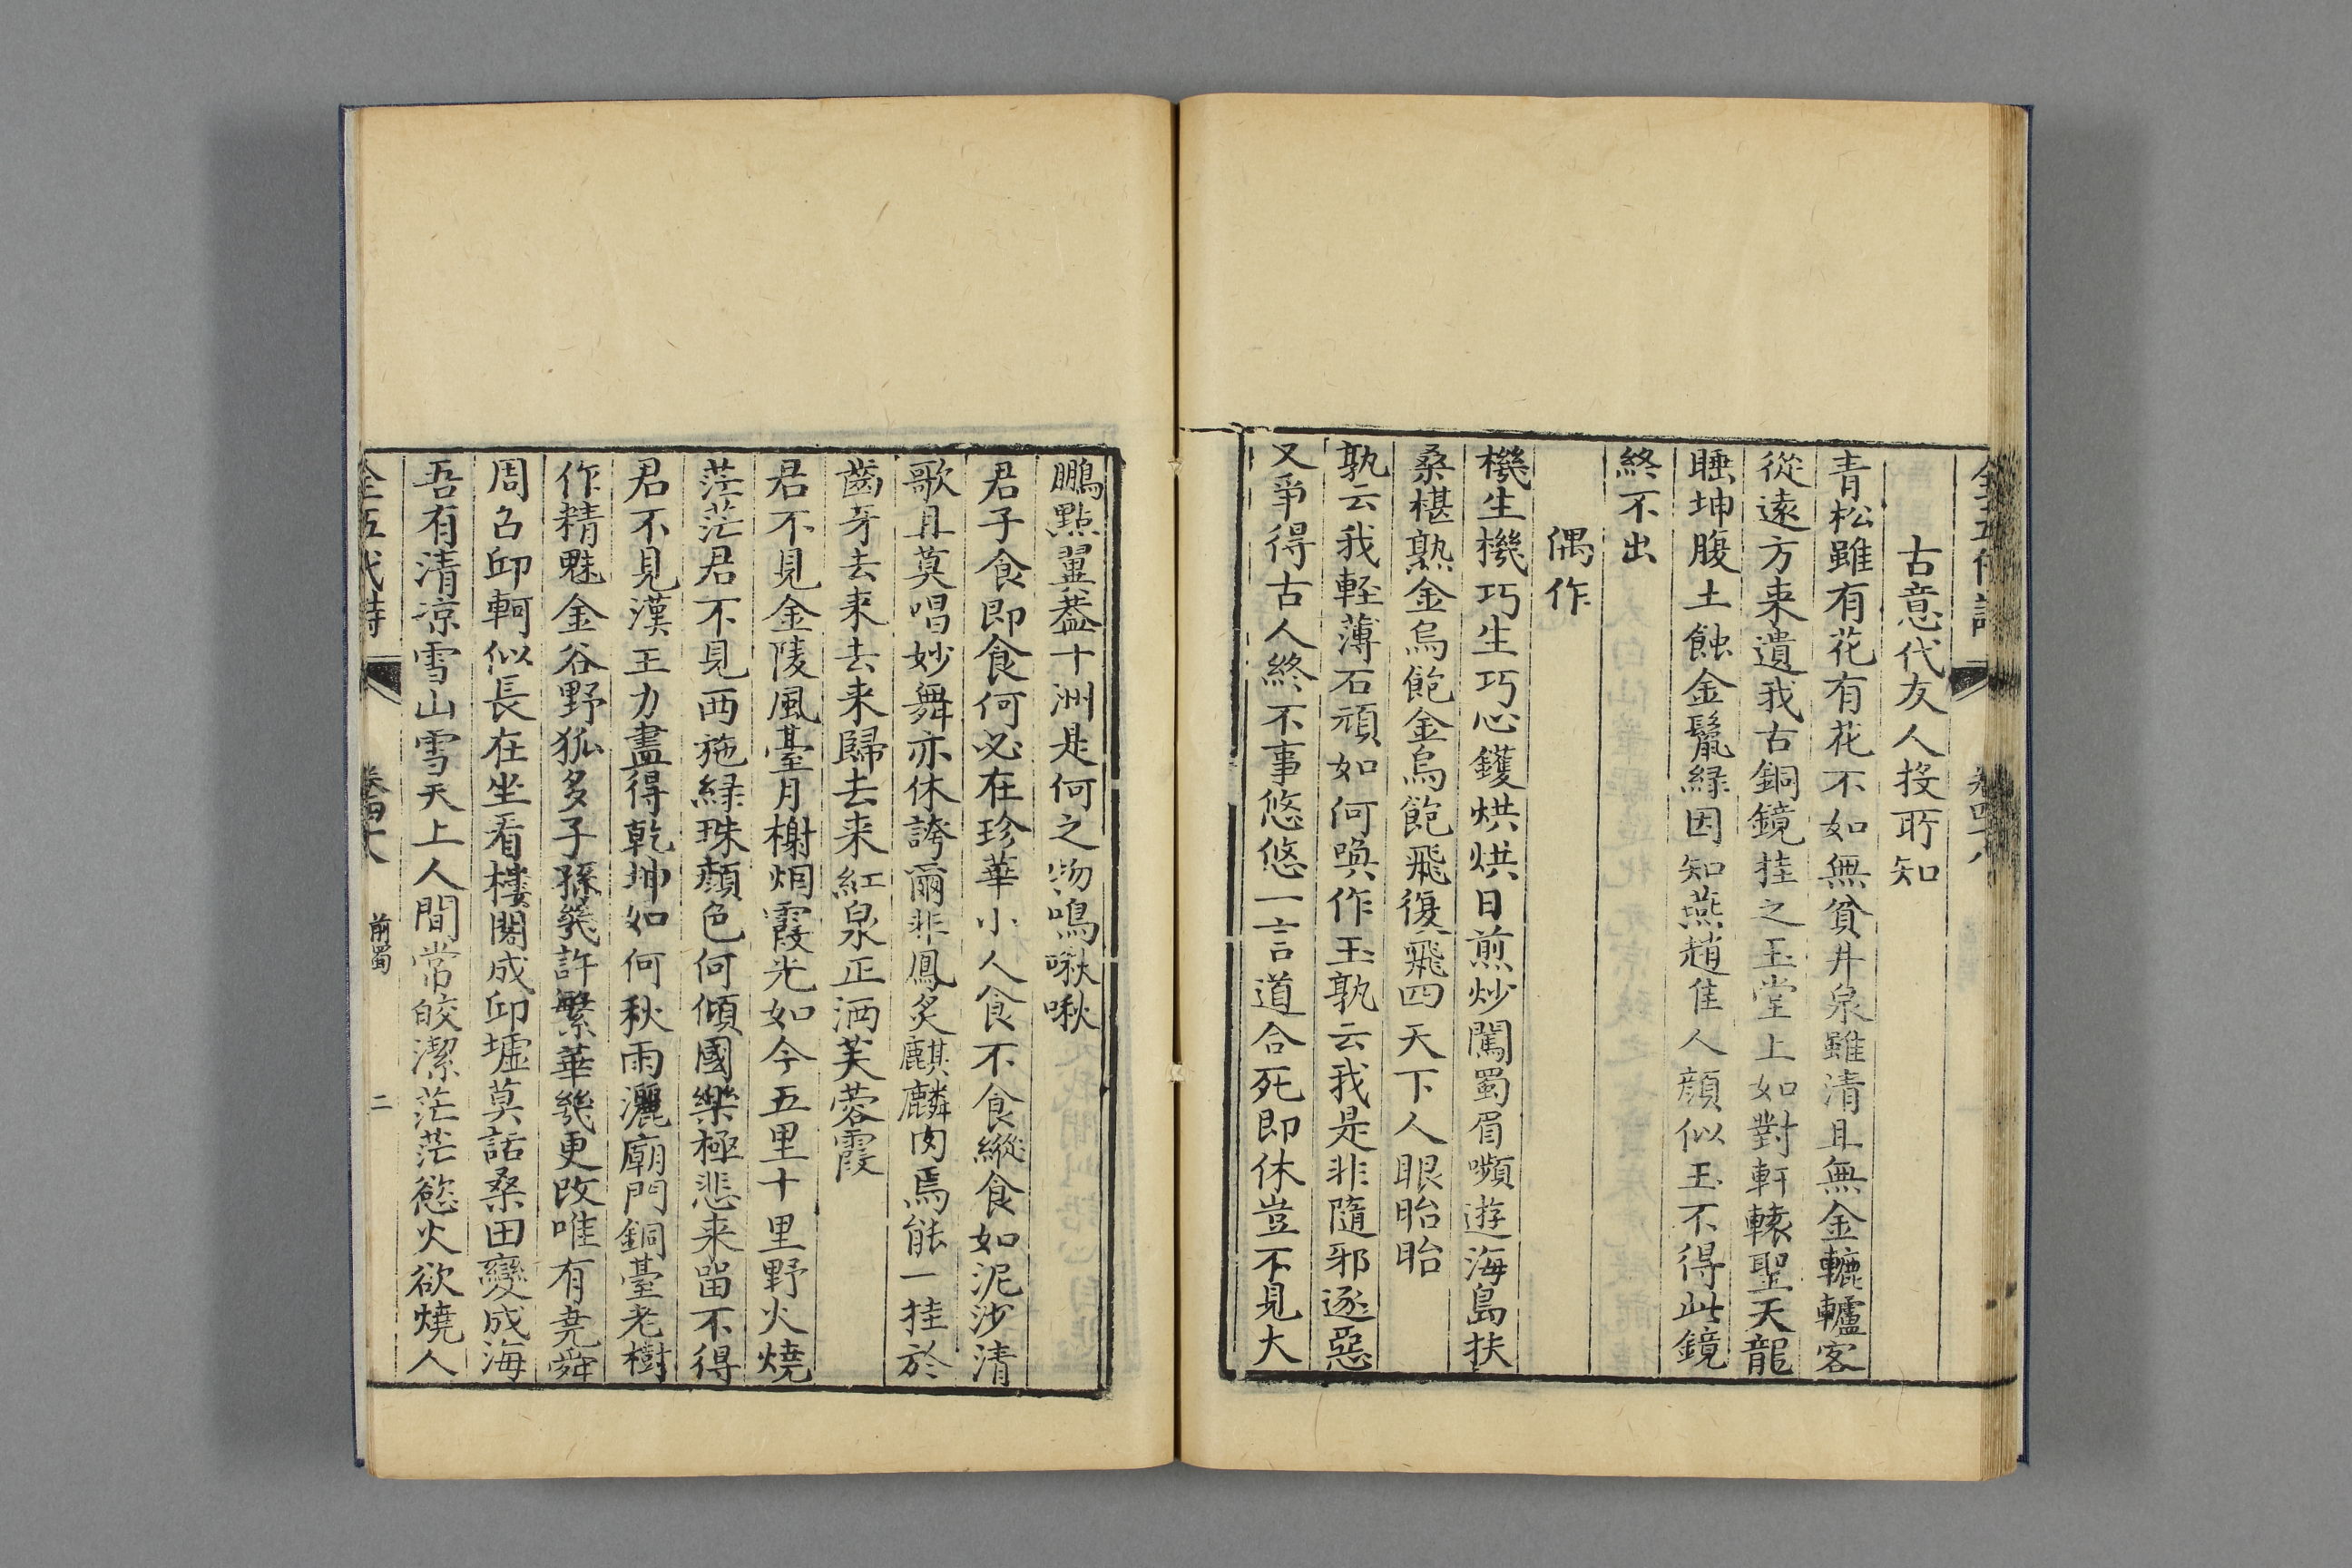 古意代友人投所知
青松雖有花有花不如無貧井泉雖清且無金轆轤客
從遠方来遺我古銅鏡挂之玉堂上如對軒轅聖天龍
睡坤腹土蝕金鬣緑因知燕趙佳人顔似玉不得此鏡
終不出
偶作
機生機巧生巧心鑊烘烘日煎炒闖蜀眉嚬遊海島扶
桑椹熟金烏飽金烏飽飛復飛四天下人眼眙眙
孰云我輕薄石頑如何喚作玉孰云我是非隨邪逐惡
又爭得古人終不事悠悠一言道合死即休豈不見大
鵬點翼葢十洲是何之物鳴啾啾
君子食即食何必在珍華小人食不食縱食如泥沙清
歌且莫唱妙舞亦休誇爾非鳳炙麒麟肉焉能一挂於
齒牙去来去来歸去来紅泉正洒芙蓉霞
君不見金陵風臺月榭烟霞光如今五里十里野火燒
茫茫君不見西施緑珠顔色何傾國樂極悲来留不得
君不見漢王力盡得乾坤如何秋雨灑廟門銅臺老樹
作精魅金谷野狐多子孫幾許繁華幾更改唯有堯舜
周召邱軻似長在坐看樓閣成邱墟莫話桑田變成海
吾有清涼雪山雪天上人間常皎潔茫茫慾火欲燒人
全五代詩 卷四十八 前蜀 二